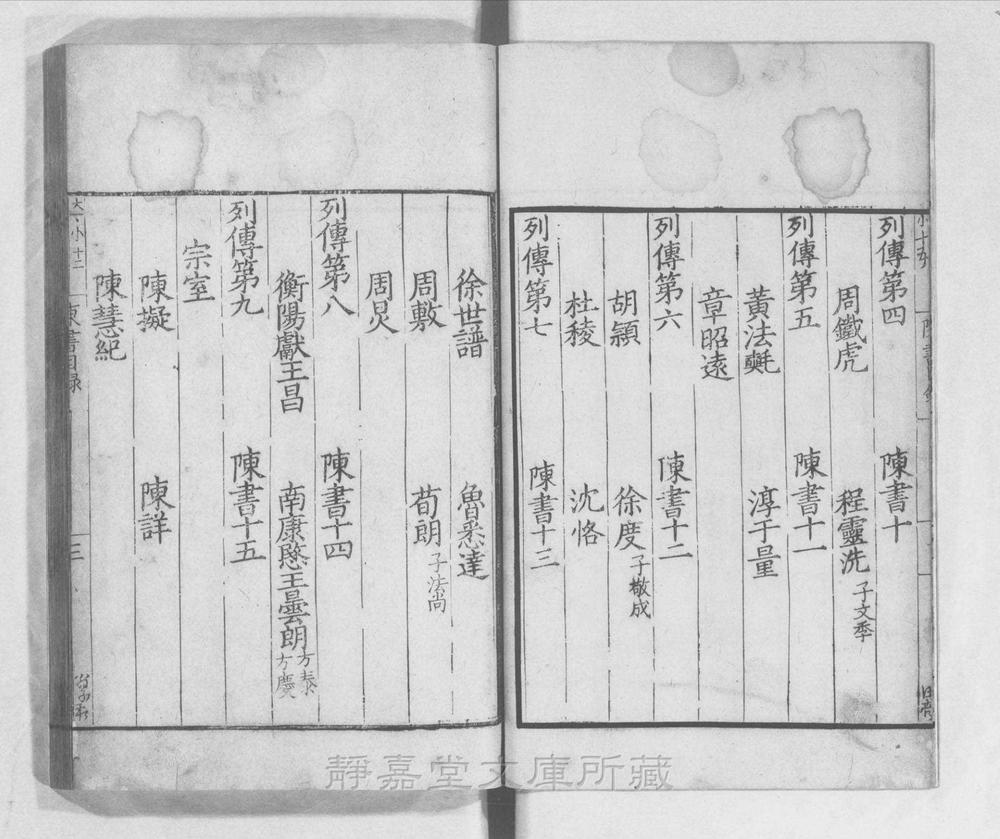 列傳第四 陳書十
周鐵虎 程靈洗 子文季
列傳第五 陳書十一
黃法𣰰 淳于量
章昭遠
列傳第六 陳書十二
胡頴 徐度 子敬成
杜稜 沈恪
列傳第七 陳書十三
徐世譜 魯悉達
周敷 荀朗 子法尚
周炅
列傳第八 陳書十四
衡陽獻王昌 南康愍王曇朗 方泰 方慶
列傳第九 陳書十五
宗室
陳擬 陳詳
陳慧紀
大 小十二 陳書目録 三
靜嘉堂文庫所藏